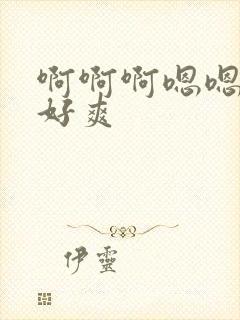 啊啊啊嗯嗯
好爽
伊靈